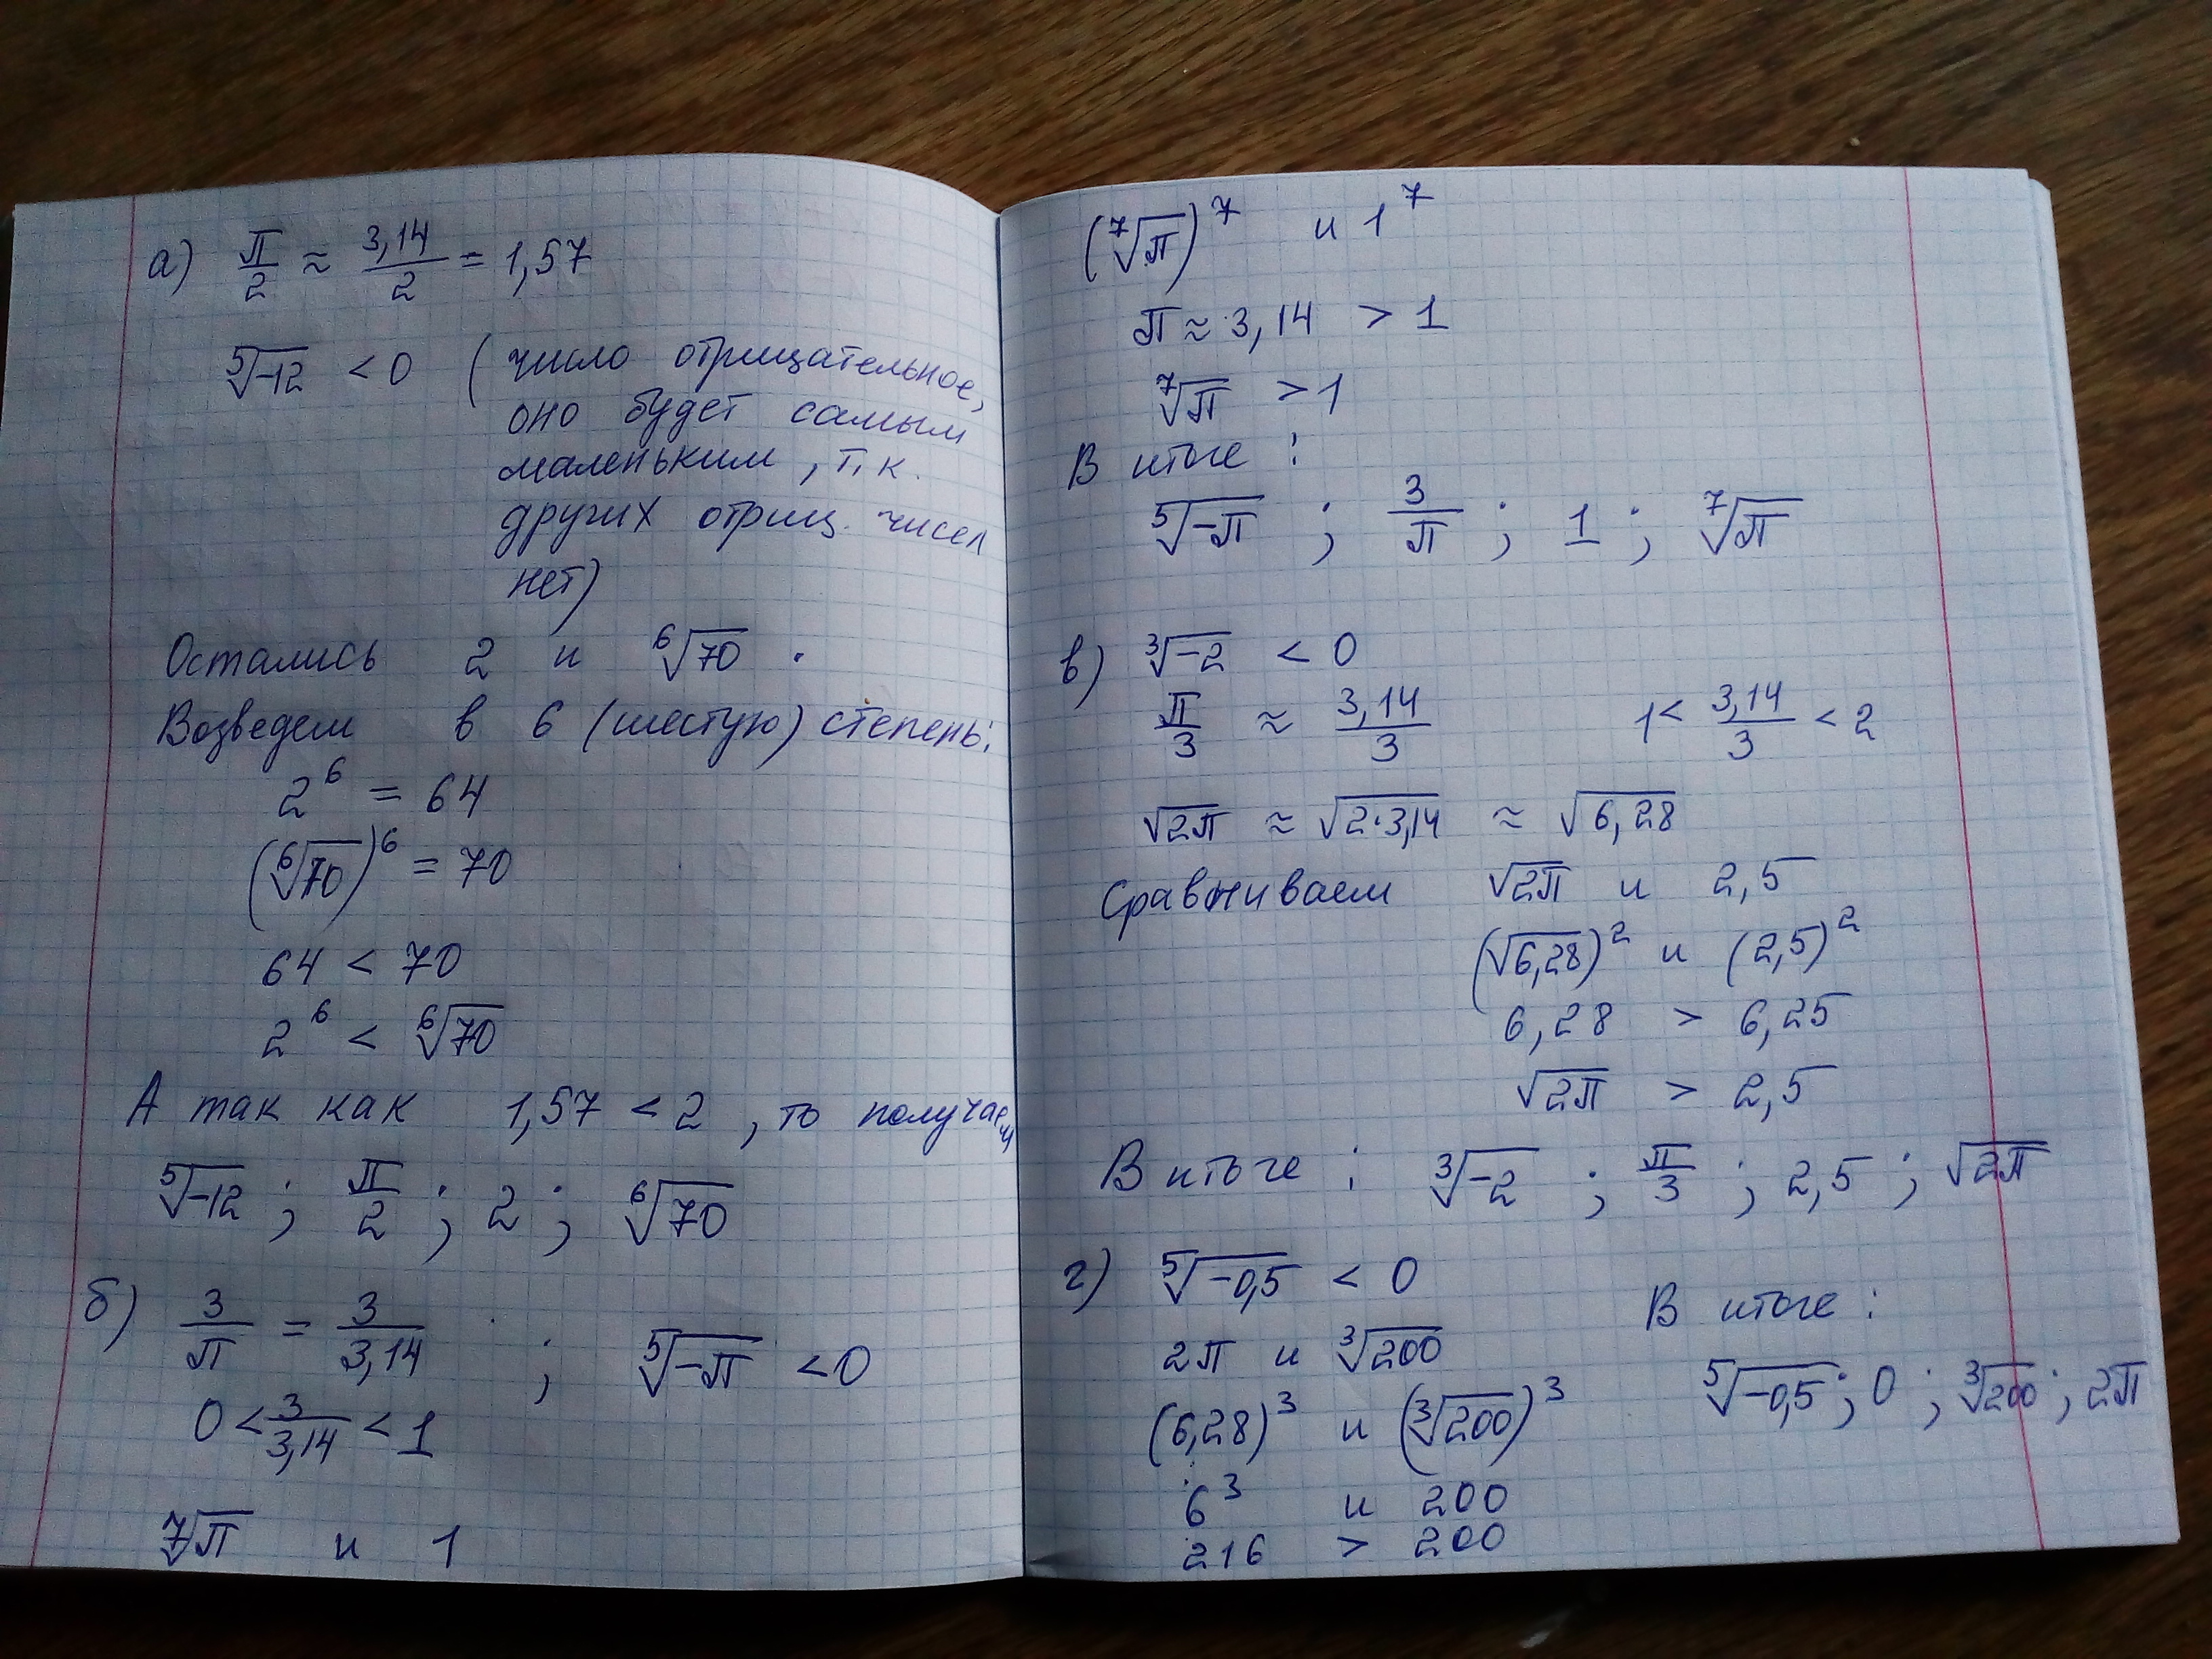 а) π/2 ≈ 3,14/2 = 1,57
⁵√-12 < 0 (число отрицательное,
оно будет самым
маленьким, т.к.
других отриц. чисел
нет)
Остались 2 и ⁶√70.
Возведем в 6 (шестую) степень:
2⁶ = 64
(⁶√70)⁶ = 70
64 < 70
2⁶ < ⁶√70
А так как 1,57 < 2, то получаем
⁵√-12; π/2; 2; ⁶√70
б) 3/π = 3/3,14 ; ⁵√-π < 0
0 < 3/3,14 < 1
⁷√π и 1
(⁷√π)⁷ и 1⁷
π ≈ 3,14 > 1
⁷√π > 1
В итоге:
⁵√-π ; 3/π ; 1 ; ⁷√π
в) ³√-2 < 0
π/3 ≈ 3,14/3 1 < 3,14/3 < 2
√2π ≈ √2·3,14 ≈ √6,28
Сравниваем √2π и 2,5
(√6,28)² и (2,5)²
6,28 > 6,25
√2π > 2,5
В итоге: ³√-2 ; π/3 ; 2,5 ; √2π
г) ⁵√-0,5 < 0
2π и ³√200
(6,28)³ и (³√200)³
6³ и 200
216 > 200
В итоге:
⁵√-0,5; 0 ; ³√200; 2π